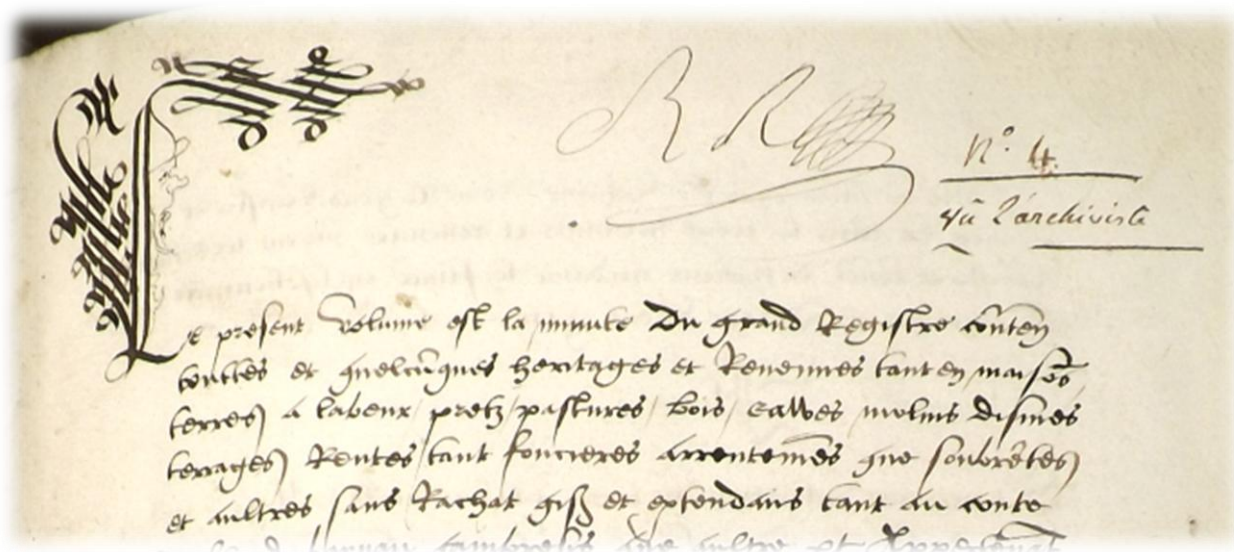 R R
N° 4
du l'archiviste
Le present volume est la minute du grand Registre conten
touttes et quelcuques heritages et Revenues tant en maisos
terres a labeur pretz pastures bois eauwes molins dismes
terrages Rentes tant foncieres arrentemes que soubretes
et aultres sans Rachat gis et extendans tant au conte
cambresis que aultre et